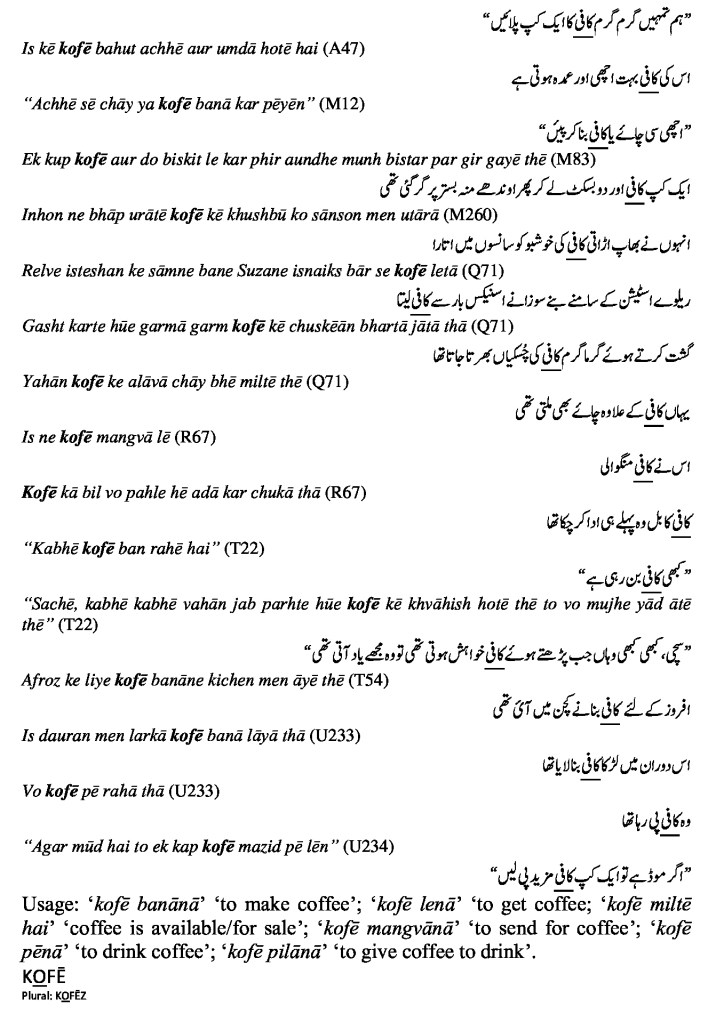 ”ہم تمہیں گرم گرم کافی کا ایک کپ پلائیں“
Is kē kofē bahut achhē aur umdā hotē hai (A47)
اس کی کافی بہت اچھی اور عمدہ ہوتی ہے
“Achhē sē chāy ya kofē banā kar pēyēn” (M12)
”اچھی سی چائے یا کافی بنا کر پیئں“
Ek kup kofē aur do biskit le kar phir aundhe munh bistar par gir gayē thē (M83)
ایک کپ کافی اور دو بسکٹ لے کر پھر اوندھے منہ بستر پر گر گئی تھی
Inhon ne bhāp urātē kofē kē khushbū ko sānson men utārā (M260)
انہوں نے بھاپ اڑاتی کافی کی خوشبو کو سانسوں میں اتارا
Relve isteshan ke sāmne bane Suzane isnaiks bār se kofē letā (Q71)
ریلوے اسٹیشن کے سامنے بنے سوزانے اسنیکس بار سے کافی لیتا
Gasht karte hūe garmā garm kofē kē chuskēān bhartā jātā thā (Q71)
گشت کرتے ہوئے گرما گرم کافی کی چُسکیاں بھرتا جاتا تھا
Yahān kofē ke alāvā chāy bhē miltē thē (Q71)
یہاں کافی کے علاوہ چائے بھی ملتی تھی
Is ne kofē mangvā lē (R67)
اس نے کافی منگوالی
Kofē kā bil vo pahle hē adā kar chukā thā (R67)
کافی کا بل وہ پہلے ہی ادا کر چکا تھا
“Kabhē kofē ban rahē hai” (T22)
”کبھی کافی بن رہی ہے“
“Sachē, kabhē kabhē vahān jab parhte hūe kofē kē khvāhish hotē thē to vo mujhe yād ātē
thē” (T22)
”سچی، کبھی کبھی وہاں جب پڑھتے ہوئے کافی خواہش ہوتی تھی تو وہ مجھے یاد آتی تھی“
Afroz ke liye kofē banāne kichen men āyē thē (T54)
افروز کے لئے کافی بنانے کچن میں آئ تھی
Is dauran men larkā kofē banā lāyā thā (U233)
اس دوران میں لڑکا کافی بنا لایا تھا
Vo kofē pē rahā thā (U233)
وہ کافی پی رہا تھا
“Agar mūd hai to ek kap kofē mazid pē lēn” (U234)
”اگر موڈ ہے تو ایک کپ کافی مزید پی لیں“
Usage: ‘kofē banānā’ ‘to make coffee’; ‘kofē lenā’ ‘to get coffee; ‘kofē miltē
hai’ ‘coffee is available/for sale’; ‘kofē mangvānā’ ‘to send for coffee’; ‘kofē
pēnā’ ‘to drink coffee’; ‘kofē pilānā’ ‘to give coffee to drink’.
KOFĒ
Plural: KOFĒZ